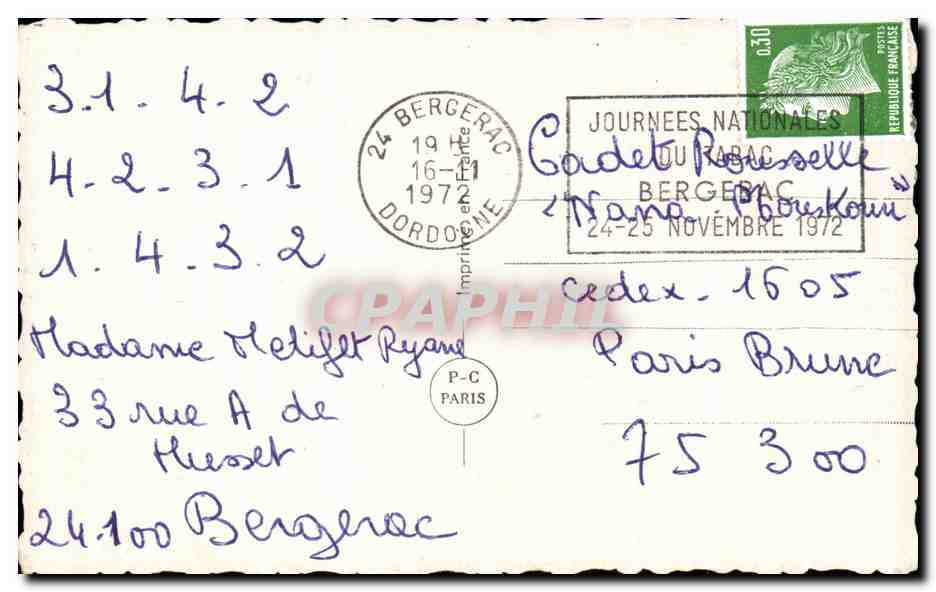 3.1. 4.2
4.2.3.1
1. 4.3.2
Madame Ryane
33 rue A de
Musset
24.100 Bergerac
24 BERGERAC
19 H
16-11
1972
DORDOGNE
Imprimé en France
P-C
PARIS
JOURNEES NATIONALES
DU TABAC
BERGERAC
24-25 NOVEMBRE 1972
0,30
POSTES
REPUBLIQUE FRANÇAISE
Cadet Rousselle
Nana Mouskouri
cedex - 1605
Paris Brune
75 300
CPAPHIL